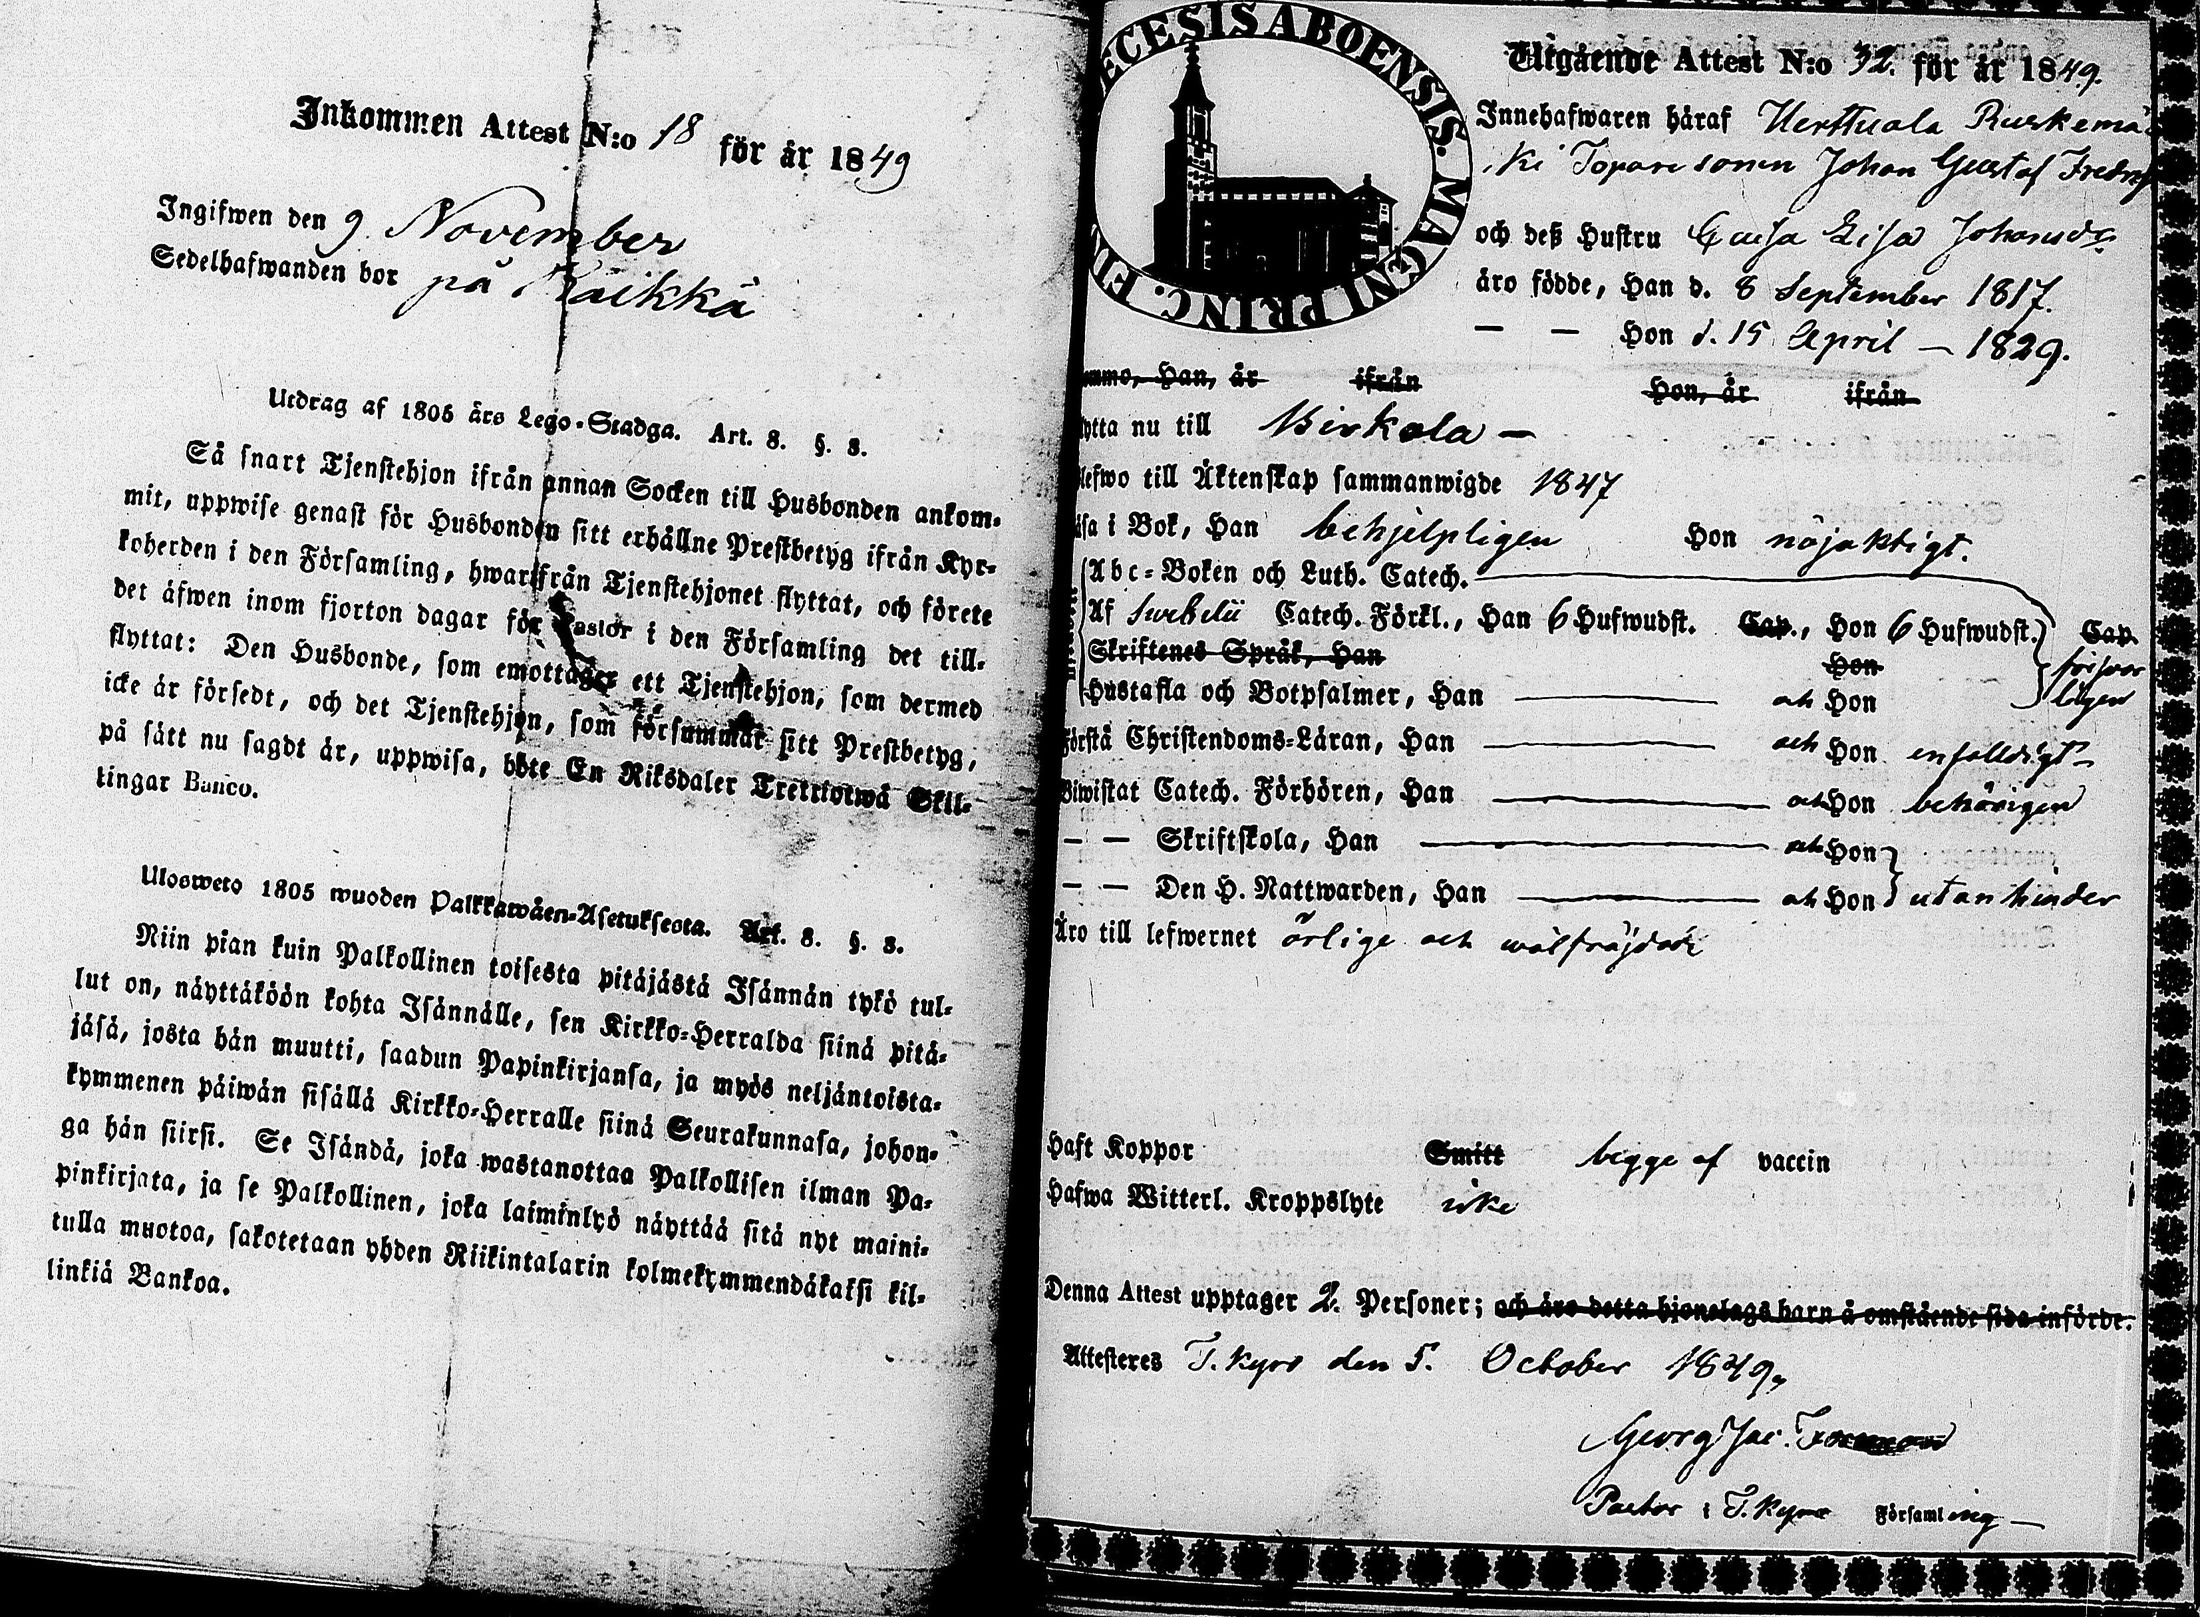 Inkommen Attest N:o 18 för år 1849
Ingifwen den 9 November
Sedelhafwanden bor på Raikkä
Utdrag af 1805 års Lego-Stadga. Art. 8. §. 3.
Så snart Tjenstehjon ifrån annan Socken till Husbonden ankom-
mit, uppwise genast för Husbonden sitt erhållne Prestbetyg ifrån Kyr-
koherden i den Församling, hwarifrån Tjenstehjonet flyttat, och förete
det äfwen inom fjorton dagar för Pastor i den Församling det till-
flyttat: Den Husbonde, som emottager ett Tjenstehjon, som dermed
icke är försedt, och det Tjenstehjon, som försummar sitt Prestbetyg,
på sätt nu sagdt är, uppwisa, böte En Riksdaler Trettiotwå Skil-
lingar Banco.
Ulosweto 1805 wuoden Palkkawäen-Asetuksesta. Art. 8. §. 3.
Niin pian kuin Palkollinen toisesta pitäjästä Isännän tykö tul-
lut on, näyttäköön kohta Isännälle, sen Kirkko-Herralda siinä pitä-
jäsä, josta hän muutti, saadun Papinkirjansa, ja myös neljäntoista-
kymmenen päiwän sisällä Kirkko-Herralle siinä Seurakunnasa, johon-
ga hän siirsi. Se Isändä, joka wastanottaa Palkollisen ilman Pa-
pinkirjata, ja se Palkollinen, joka laiminlyö näyttää sitä nyt maini-
tulla muotoa, sakotetaan yhden Riikintalarin kolmekymmendäkaksi kil-
linkiä Bankoa.
ECESIS ABOENSIS. MAGNI PRINC. FIN
Utgående Attest N:o 32. för år 1849.
Innehafwaren häraf Herttuala Ruskemä
ki Topare sonen Johan Gustaf Fredr
och deß Hustru Cajsa Lisa Johansdr
äro födde, Han d. 8 September 1817.
— — Hon d. 15 April — 1829.
ommo, Han, år ifrån Hon, år ifrån
lytta nu till Birkala —
lefwo till Äktenskap sammanwigde 1847
äsa i Bok, Han behjelpligen Hon nöjaktigt.
Abc-Boken och Luth. Catech.
Af Swebelii Catech. Förkl., Han 6 Hufwudst. Cap., Hon 6 Hufwudst. Cap.
Skriftenes Språk, Han Hon försvar
Hustafla och Botpsalmer, Han och Hon ligen
Förstå Christendoms-Läran, Han och Hon enfalldigt
Biwistat Catech. Förhören, Han och Hon behörigen
— — Skriftskola, Han och Hon
— — Den H. Nattwarden, Han och Hon utan hinder
Äro till lefwernet ärlige och wälfräjdade
Haft Koppor Smitt begge af vaccin
Hafwa Witterl. Kroppslyte icke
Denna Attest upptager 2. Personer; och äro detta hjonelags barn å omstående sida införde.
Attesteres T. Kyro den 5. October 1849.
Georg Jac.
Pastor i T. Kyro Församling —